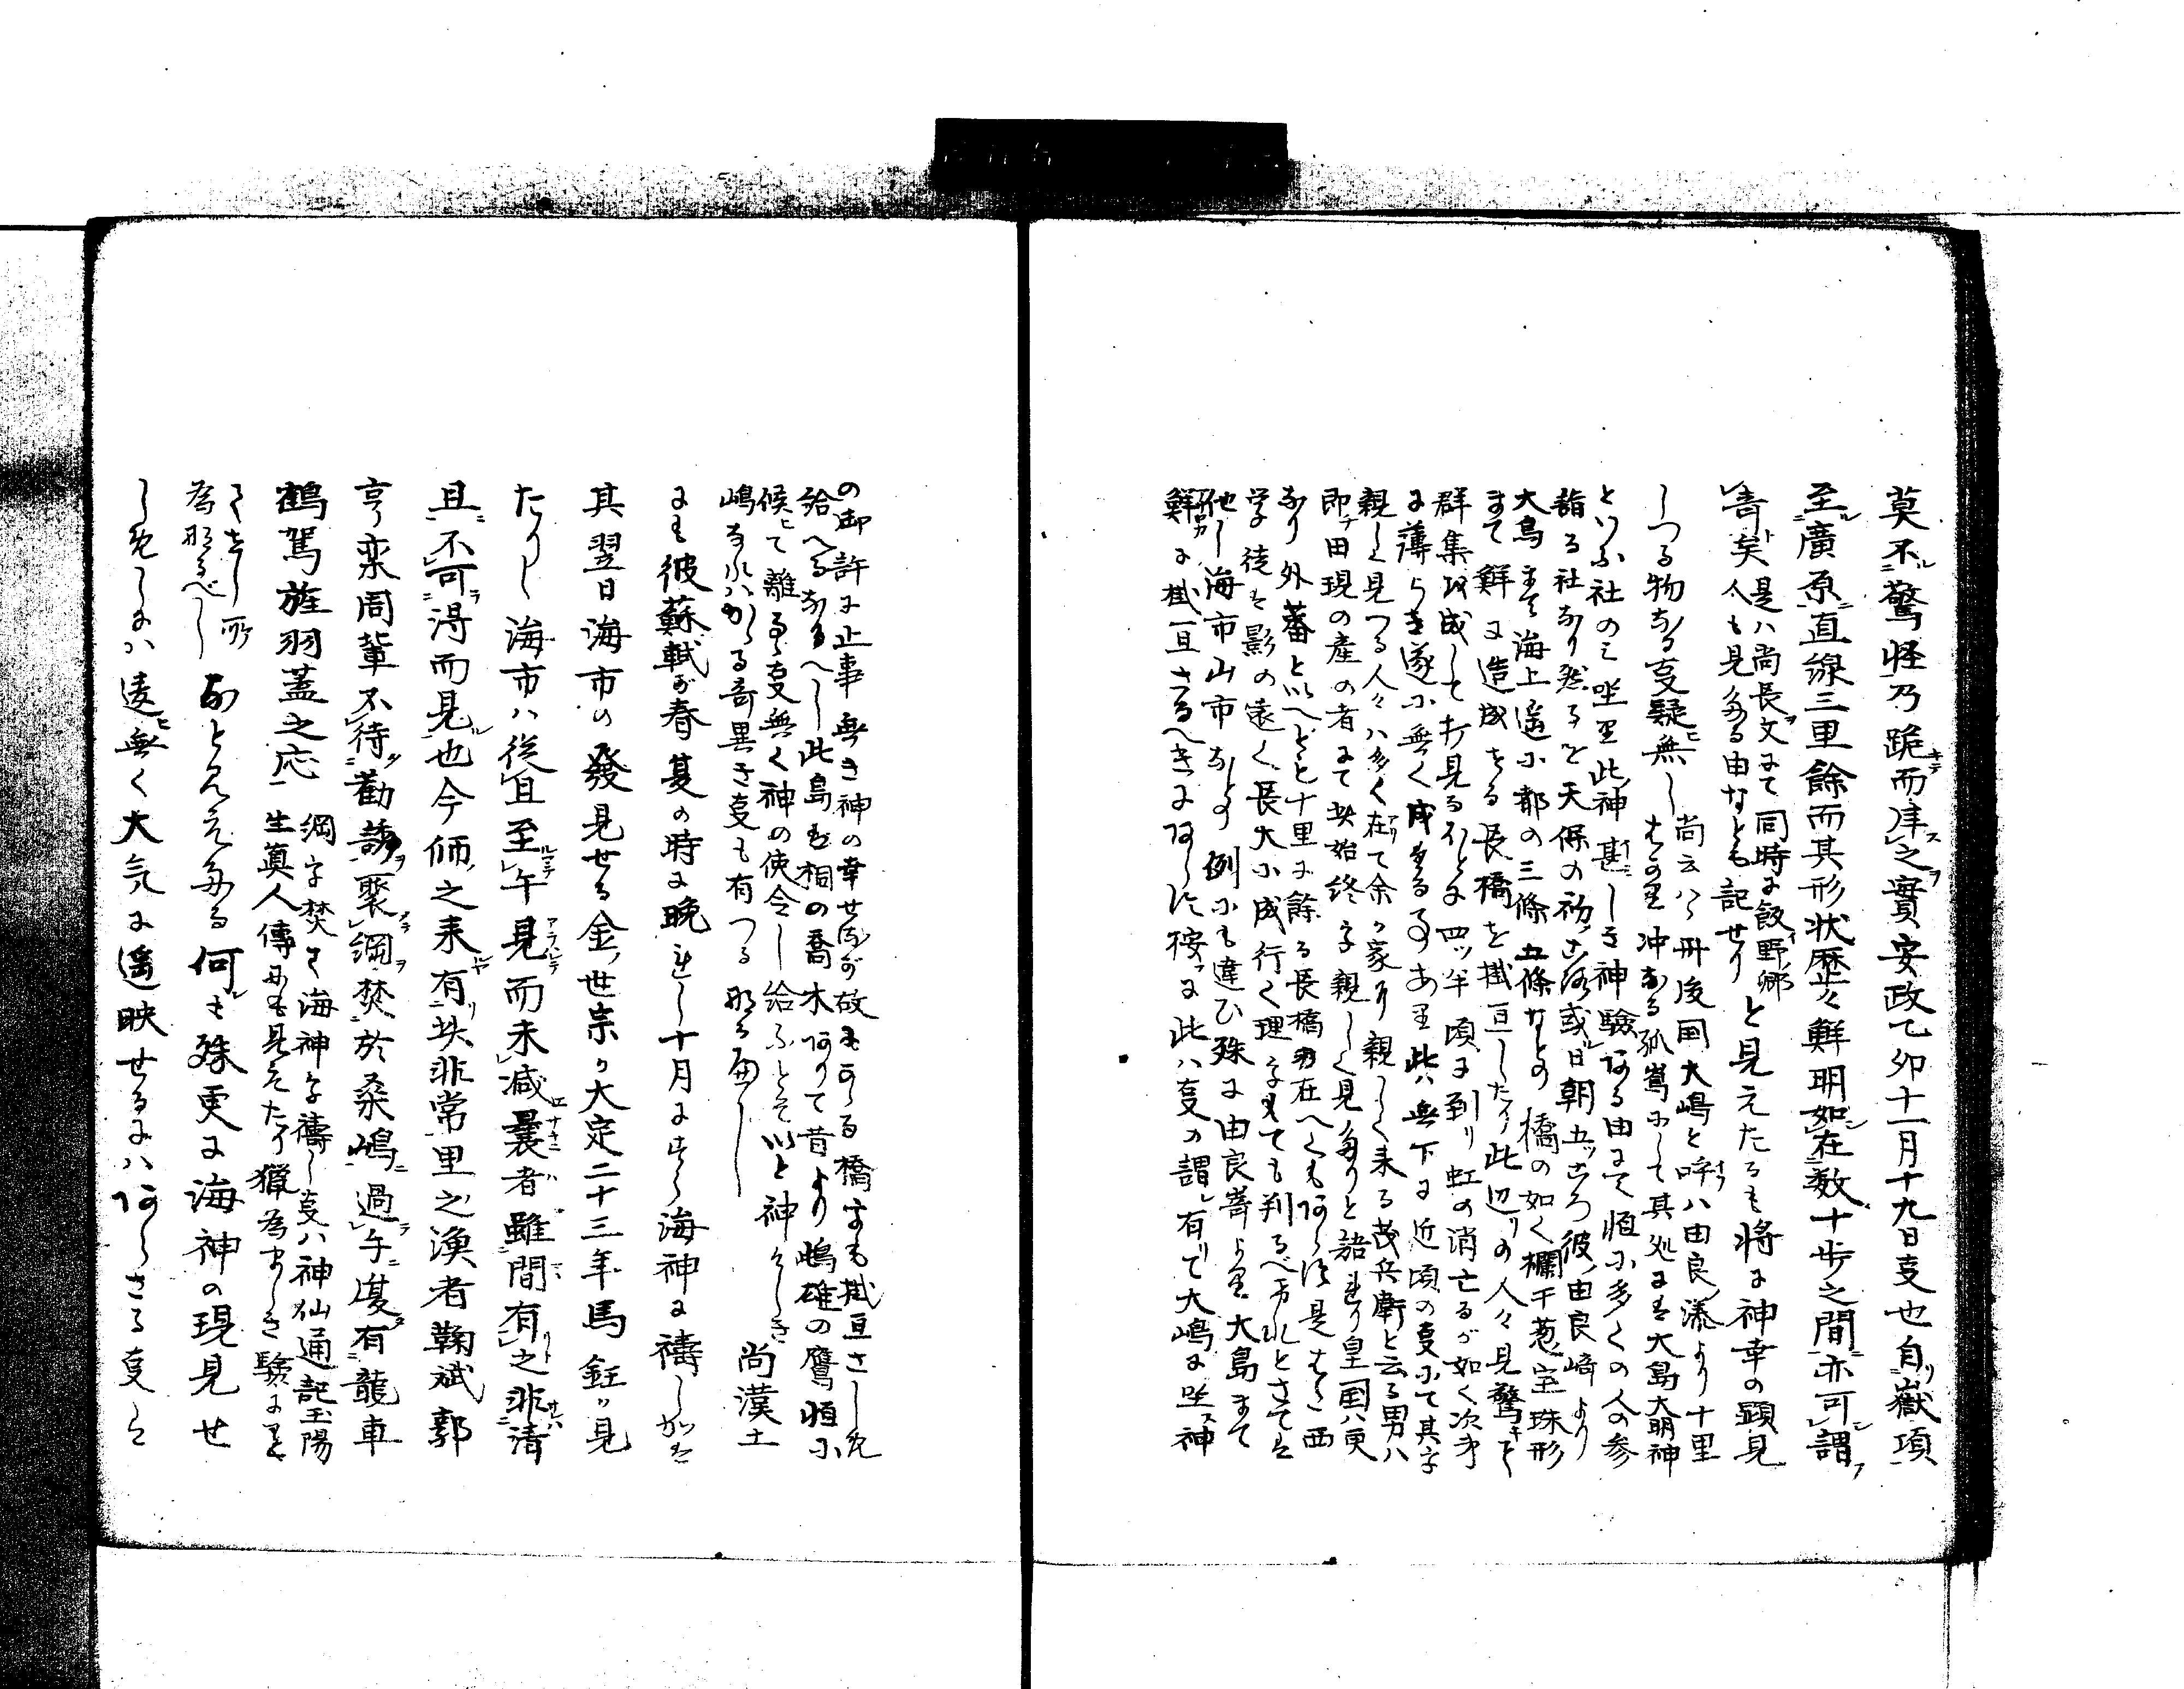 莫不驚怪乃跪而拝之實安政乙卯十一月十九日叓也自嶽項
至廣原直線三里餘而其形状歴々鮮明如在数十歩之間亦可謂
奇矣 是ハ尚長文にて同時に飯野郷
人も見たる由なとも記せり と見えたるも将に神幸の顕見
しつる物なる叓疑無し 尚云ハヽ丹後国大嶋と呼ハ由良湊より十里
はかり沖なる孤嶌にして其処には大島大明神
といふ社のミ坐り此神甚しき神験ある由にて恒に多くの人の参
詣る社なり然るを天保の初ころ或日朝五ツころ彼由良﨑より
大島まて海上遥に都の三條五條なとの橋の如く欄干葱宝珠形
まて鮮に造成せる長橋を掛亘したり此辺りの人々見驚きて
群集成して打見るほとに四ッ半頃に到り虹の消亡るが如く次才
に薄らき遂に無く成たる事あり此ハ無下に近頃の叓にて其を
親しく見つる人々ハ多く在て余か家に親しく来る茂兵衛と云る男ハ
即チ田現の産の者にて其始終を親しく見たりと語れり皇国ハ更
なり外蕃と以へとも十里に餘る長橋の在へくもあらす是はた西
学徒は影の遠く長大に成行く理をもても判るべけれとさては
他し海市山市なとの例にも違ひ殊に由良嵜より大島まて
鮮に掛亘さるへきにあらす按に此ハ叓の謂有て大嶋に坐神
の御許に止事無き神の幸せるが故にかゝる橋をも掛亘さし免
給へるなるへし此島には桐の喬木ありて昔より鴟雄の鷹恒に
候て離るゝ叓無く神の使令し給ふとて以と神々しき
嶋なれハかゝる奇異き叓も有つる那る遍し 尚漢土
にも彼蘇軾が春夏の時に晩れし十月にすら海神に禱しかは
其翌日海市の發見せる金世宗か大定二十三年馬鈺か見
たりし海市ハ従旦至午見而未减曩者雖間有之非清
且不可淂而見也今师之来有其非常里之漁者鞠斌郭
亨欒周輩不待勸誘聚綱焚於桒嶋過午𢈘有龍車
鶴駕旌羽蓋之応 綱を焚て海神を禱し叓ハ神仙通記玉陽
生眞人傳にも見えたり獵為ましき験にとて
てせし所
為那るべし なと見えたる何も殊更に海神の現見せ
し免しには違無く大気に遥映せるにハあらさる叓と